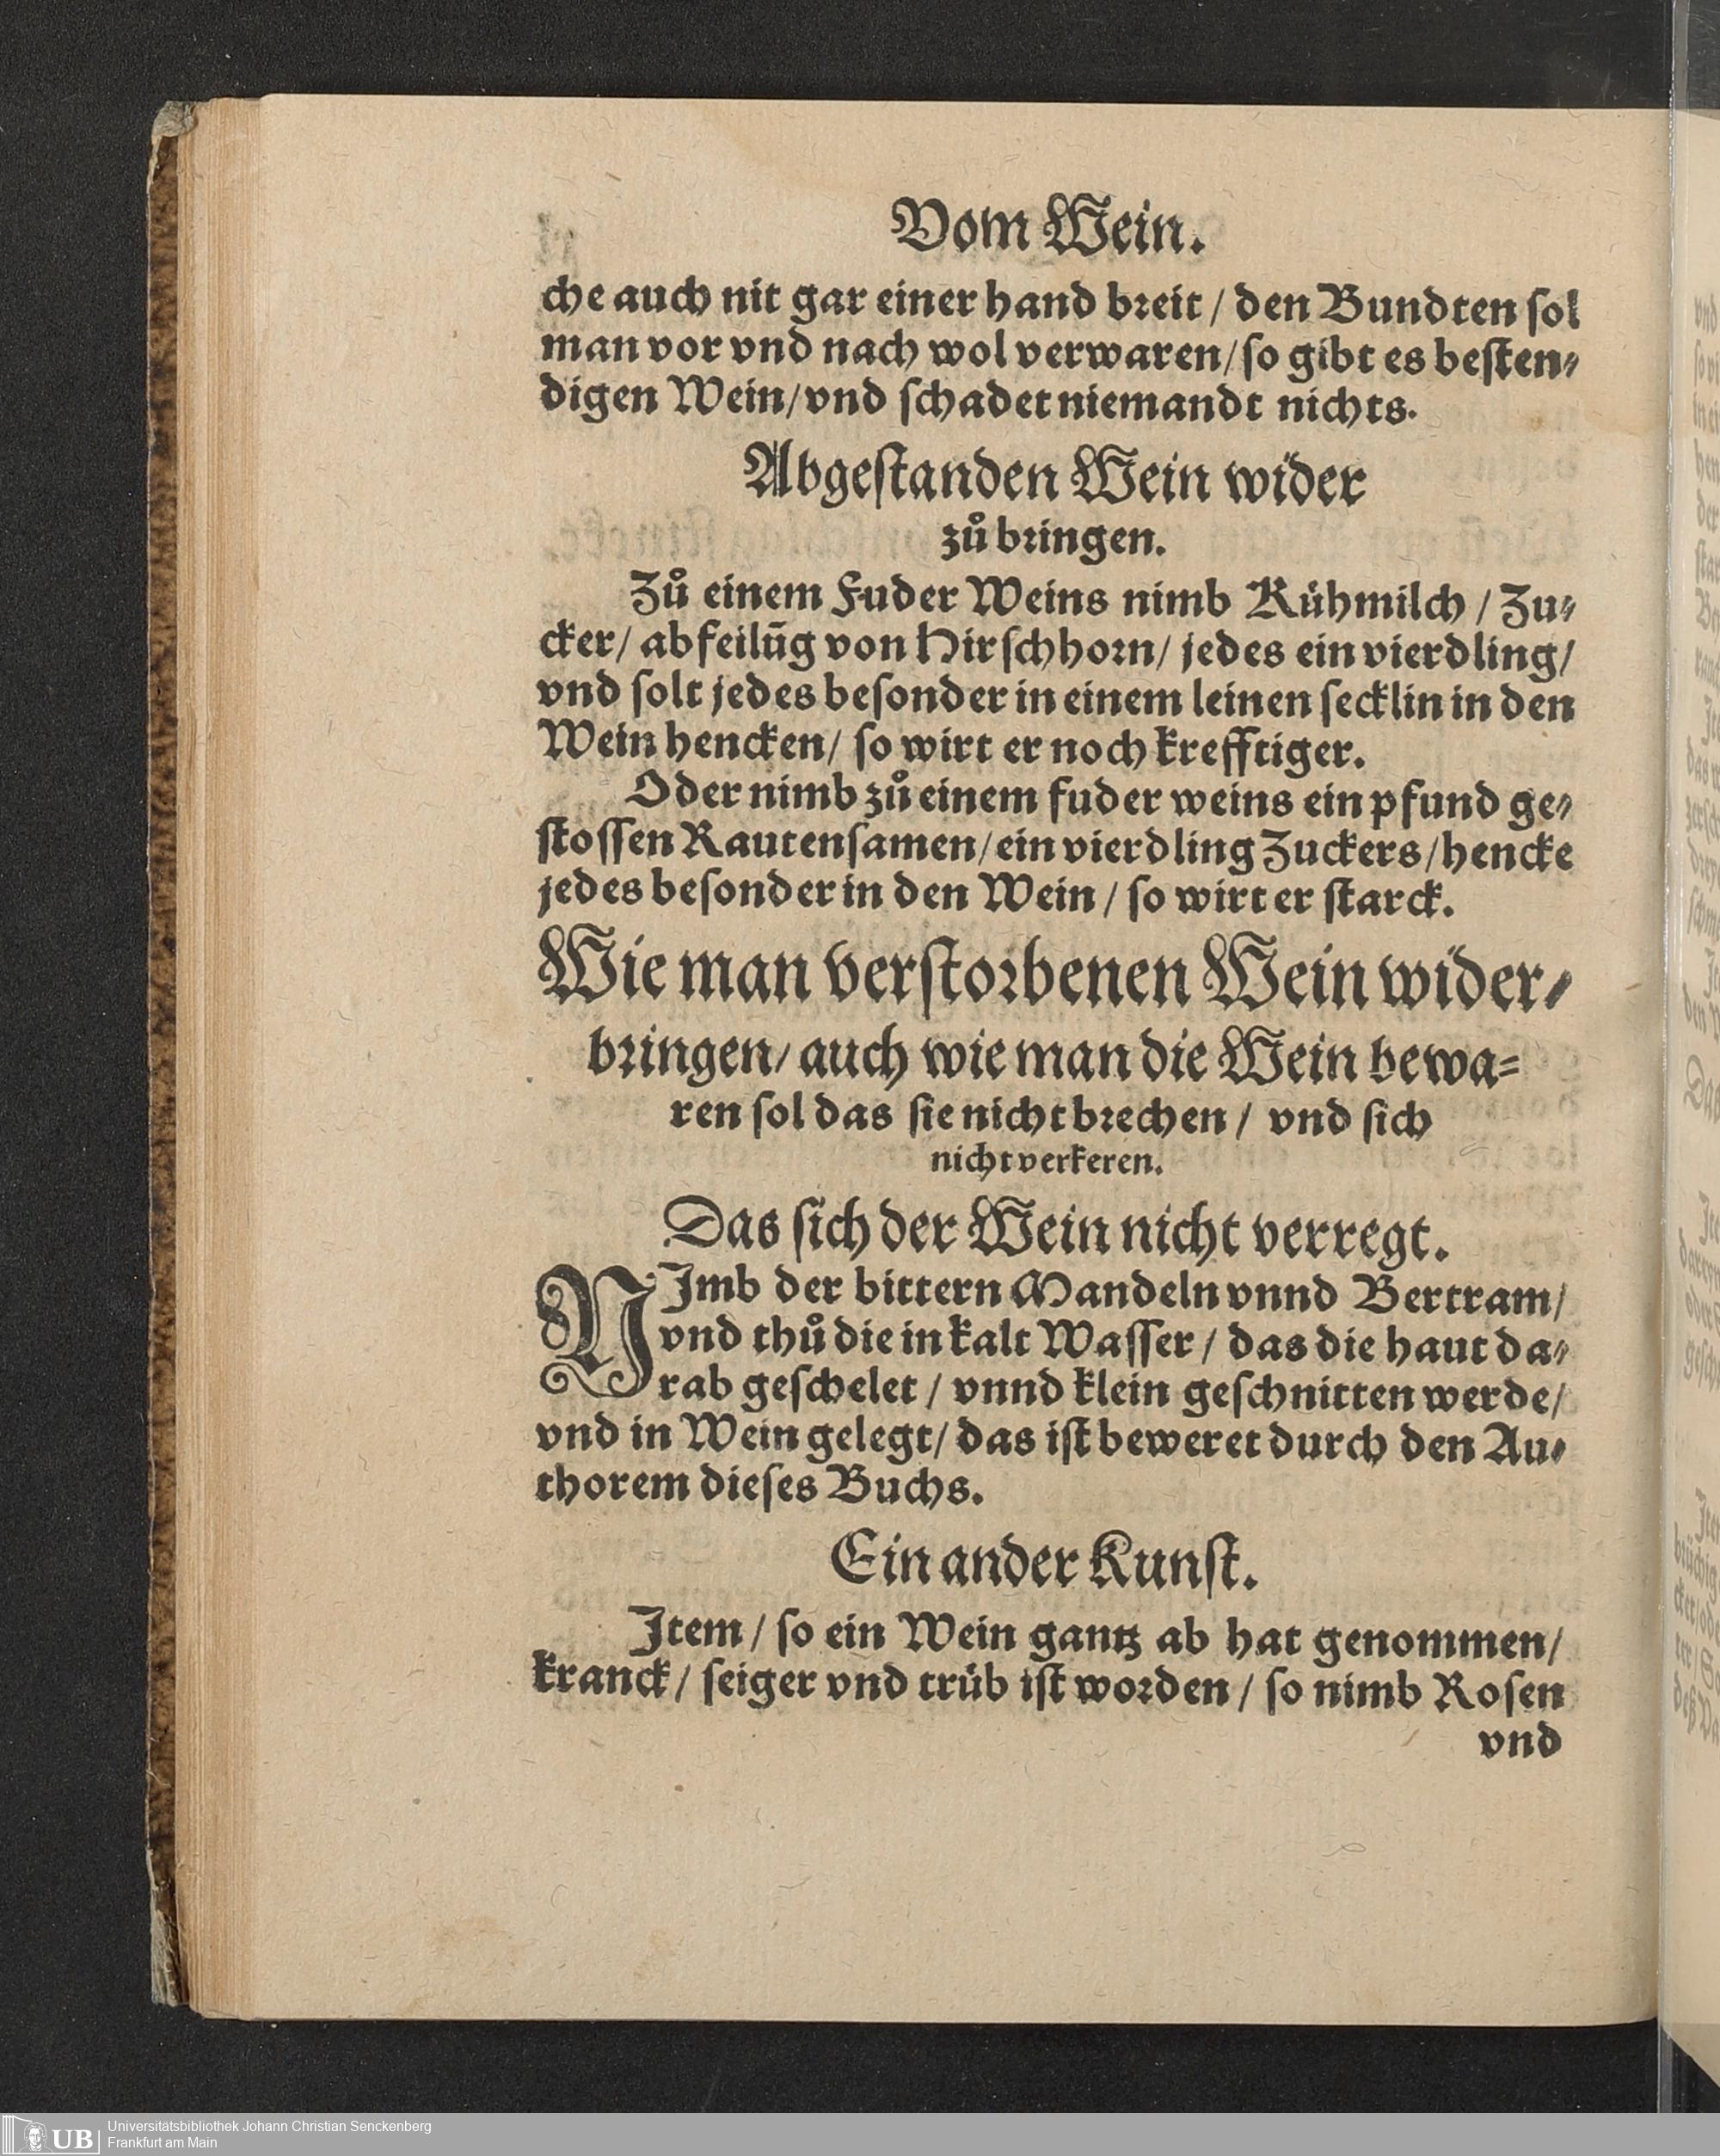 Vom Wein.
che auch nit gar einer hand breit / den Bundten ſol
man vor vnd nach wol verwaren / ſo gibt es beſten⸗
digen Wein / vnd ſchadet niemandt nichts.
Abgeſtanden Wein wider
zů bringen.
Zů einem Fuder Weins nimb Kühmilch / Zu⸗
cker / abfeilūg von Hirſchhorn / jedes ein vierdling /
vnd ſolt jedes beſonder in einem leinen ſecklin in den
Wein hencken / ſo wirt er noch krefftiger.
Oder nimb zů einem fuder weins ein pfund ge⸗
ſtoſſen Rautenſamen / ein vierdling Zuckers / hencke
jedes beſonder in den Wein / ſo wirt er ſtarck.
Wie man verſtorbenen Wein wider⸗
bringen / auch wie man die Wein bewa⸗
ren ſol das ſie nicht brechen / vnd ſich
nicht verkeren.
Das ſich der Wein nicht verregt.
NImb der bittern Mandeln vnnd Bertram /
vnd thů die in kalt Waſſer / das die haut da⸗
rab geſchelet / vnnd klein geſchnitten werde /
vnd in Wein gelegt / das iſt beweret durch den Au⸗
thorem dieſes Buchs.
Ein ander Kunſt.
Item / ſo ein Wein gantz ab hat genommen /
kranck / ſeiger vnd trüb iſt worden / ſo nimb Roſen
vnd
UB
Universitätsbibliothek Johann Christian Senckenberg
Frankfurt am Main